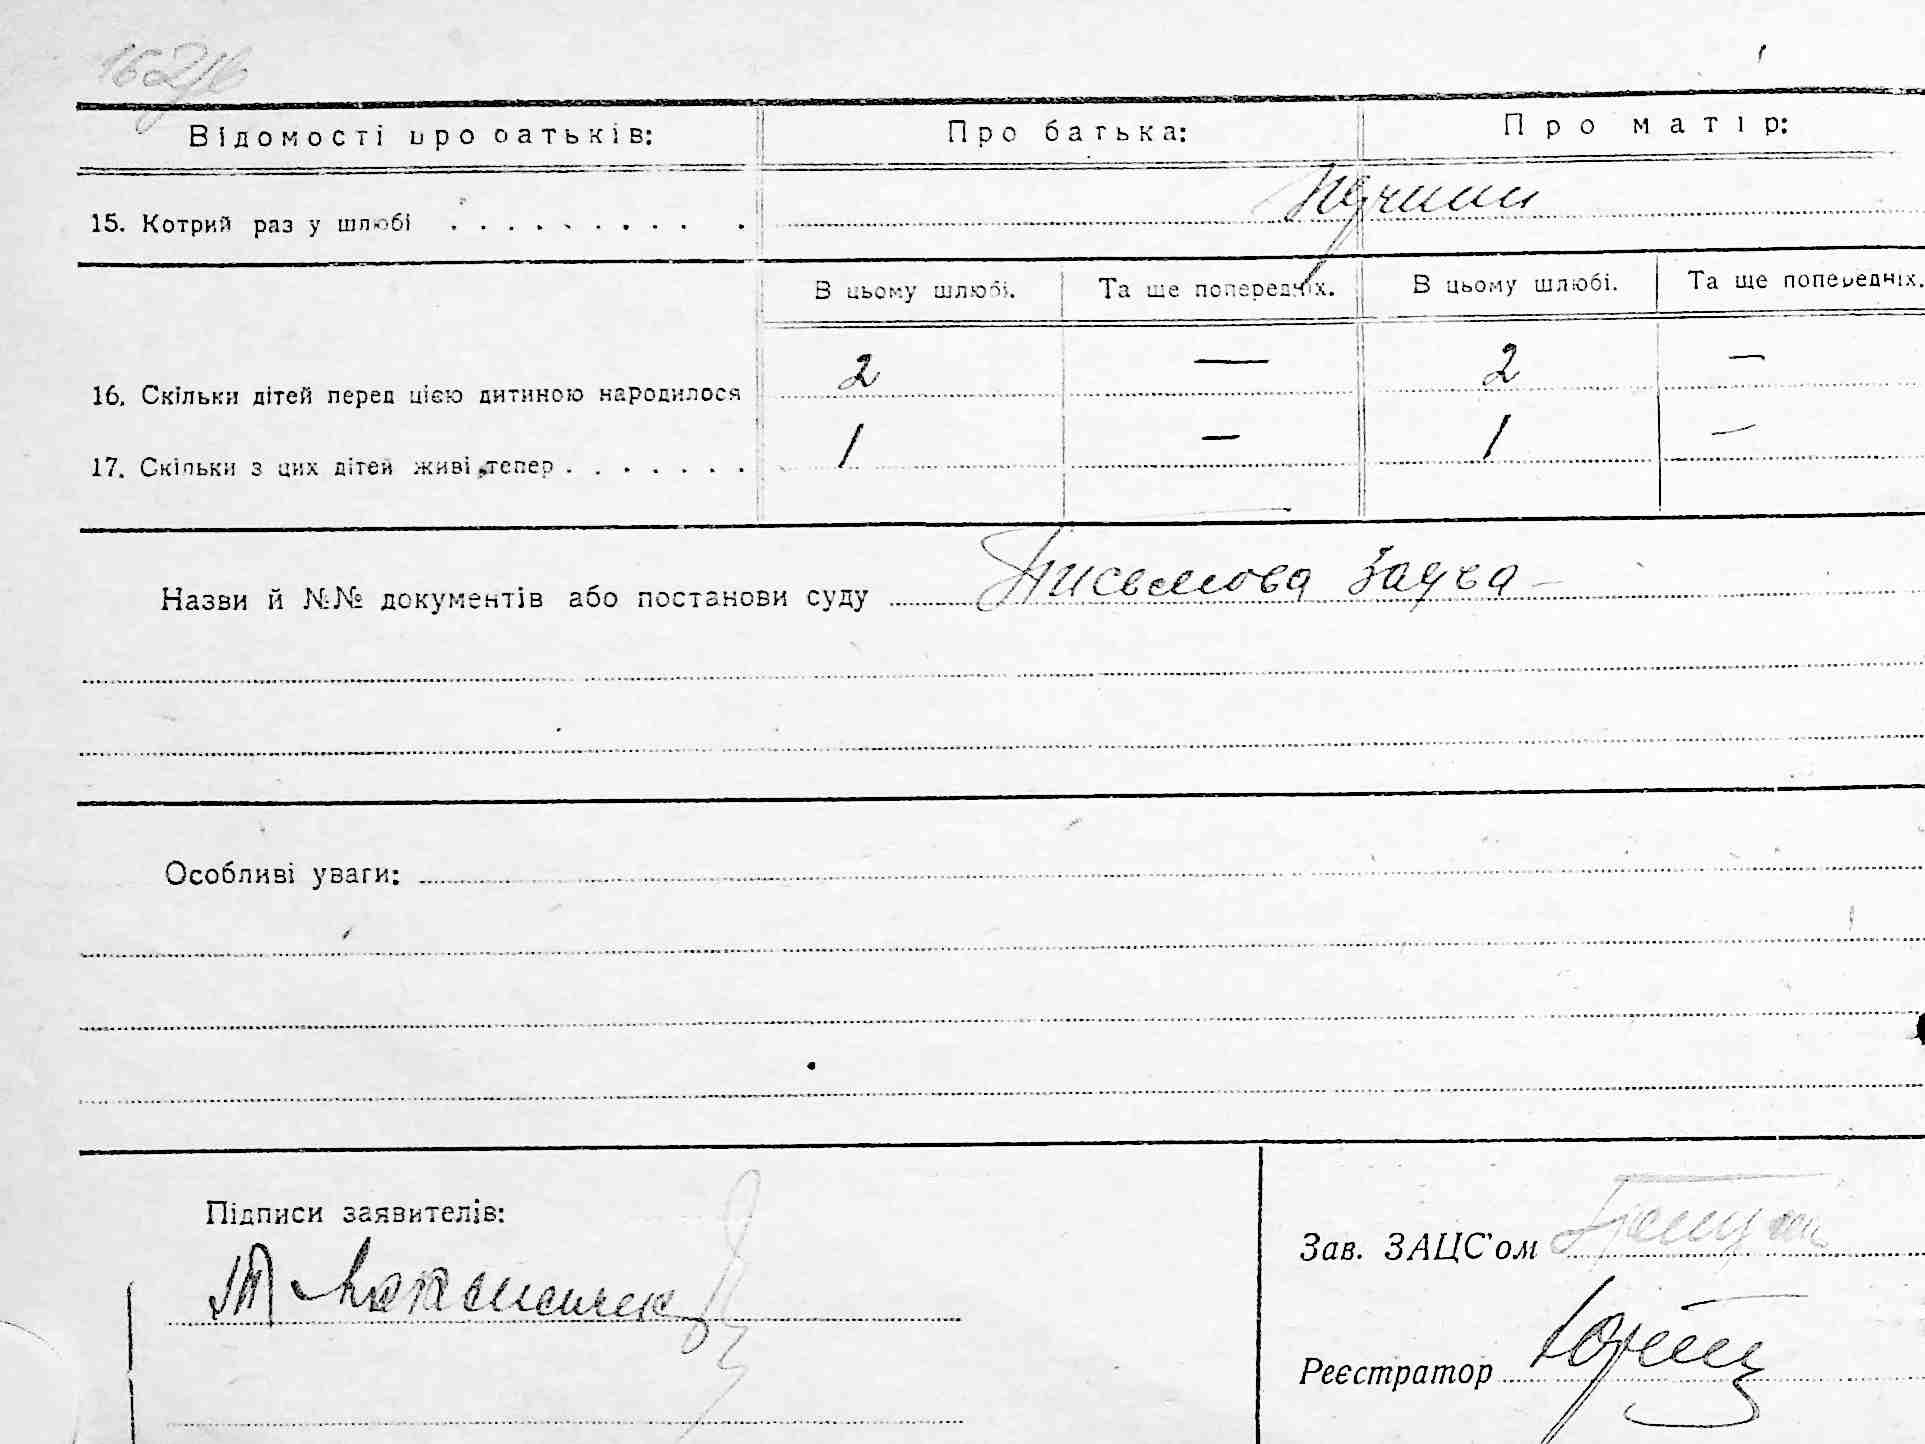 Відомості про батьків: Про батька: Про матір:
15. Котрий раз у шлюбі . . . . . . . . . . Перший
В цьому шлюбі. Та ще попередніх. В цьому шлюбі. Та ще попередніх.
16. Скільки дітей перед цією дитиною народилося 2 — 2 —
17. Скільки з цих дітей живі тепер . . . . . . . 1 — 1 —
Назви й №№ документів або постанови суду Письмова заява —
Особливі уваги:
Підписи заявителів:
Зав. ЗАЦС'ом
Реєстратор